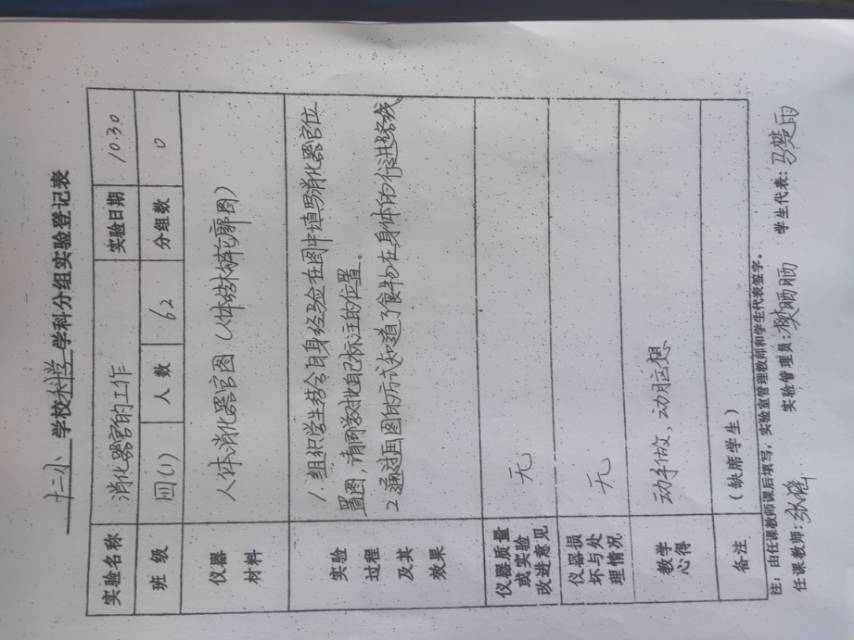 十二小 学校科学 学科分组实验登记表
实验名称 消化器官的工作 实验日期 10.30
班级 四(1) 人数 62 分组数 0
仪器
材料
人体消化器官图（人体结构轮廓图）
实验
过程
及其
效果
1.组织学生结合自身经验在图中填写消化器官位
置图，请同学对比自己标注的位置。
2通过画图的方式知道了食物在身体的行进路线
仪器质量
或实验
改进意见
无
仪器损
坏与处
理情况
无
教学
心得
动手做，动脑想
备注 （缺席学生）
注：由任课教师课后填写，实验室管理教师和学生代表签字。
任课教师: 实验管理员: 学生代表: 马楚雨